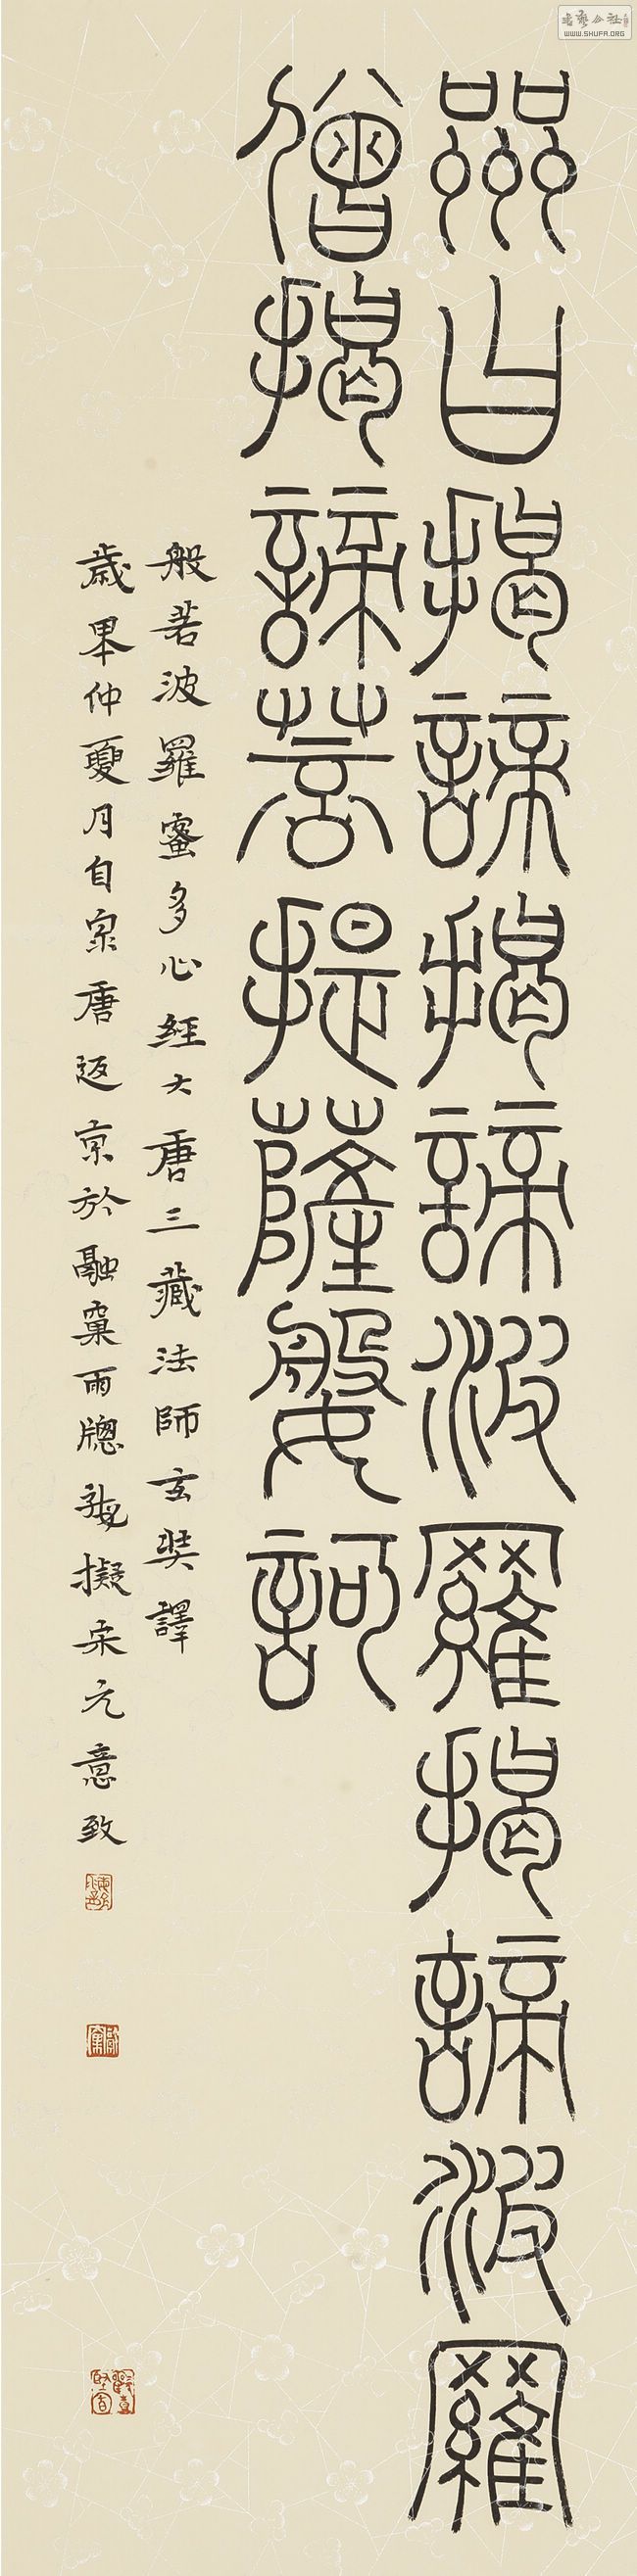 咒曰揭諦揭諦波羅揭諦波羅
僧揭諦菩提薩媻訶
般若波羅蜜多心經大唐三藏法師玄奘譯
歲仲夏月自泉唐返京於融窠雨牕擬宋元意致
书艺公社
WWW.SHUFA.ORG